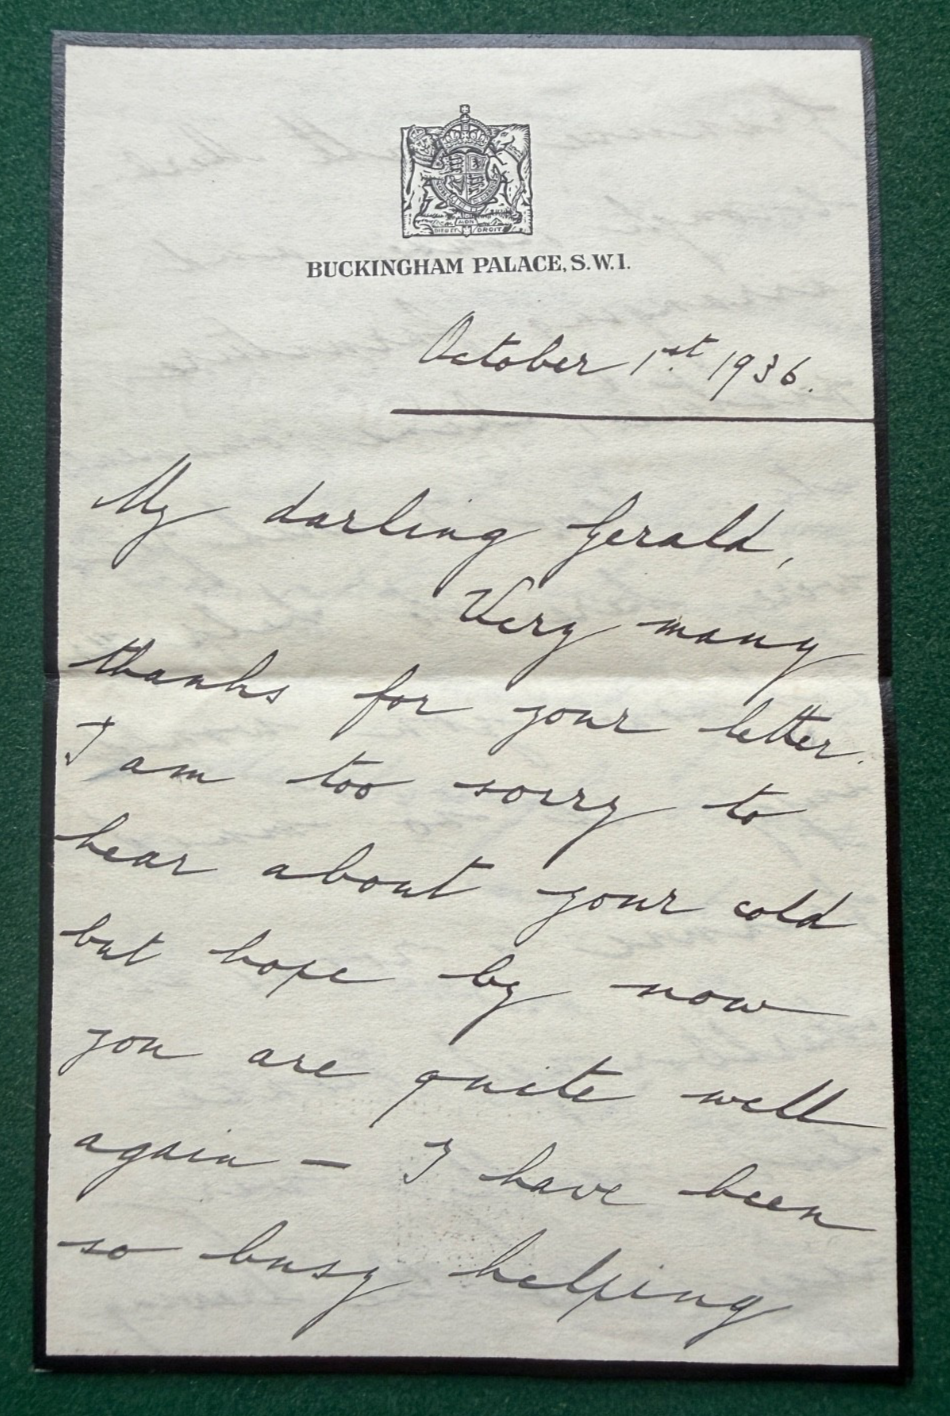 DIEU ET MON DROIT
BUCKINGHAM PALACE, S.W.1.
October 1st. 1936.
My darling Gerald,
Very many
thanks for your letter.
I am too sorry to
hear about your cold
but hope by now
you are quite well
again — I have been
so busy helping